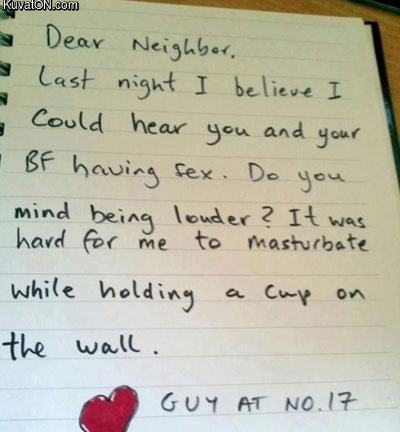 KuvatON.com
Dear Neighbor.
Last night I believe I
Could hear you and your
BF having sex. Do you
mind being louder? It was
hard for me to masturbate
while holding a cup on
the wall.
GUY AT NO.17